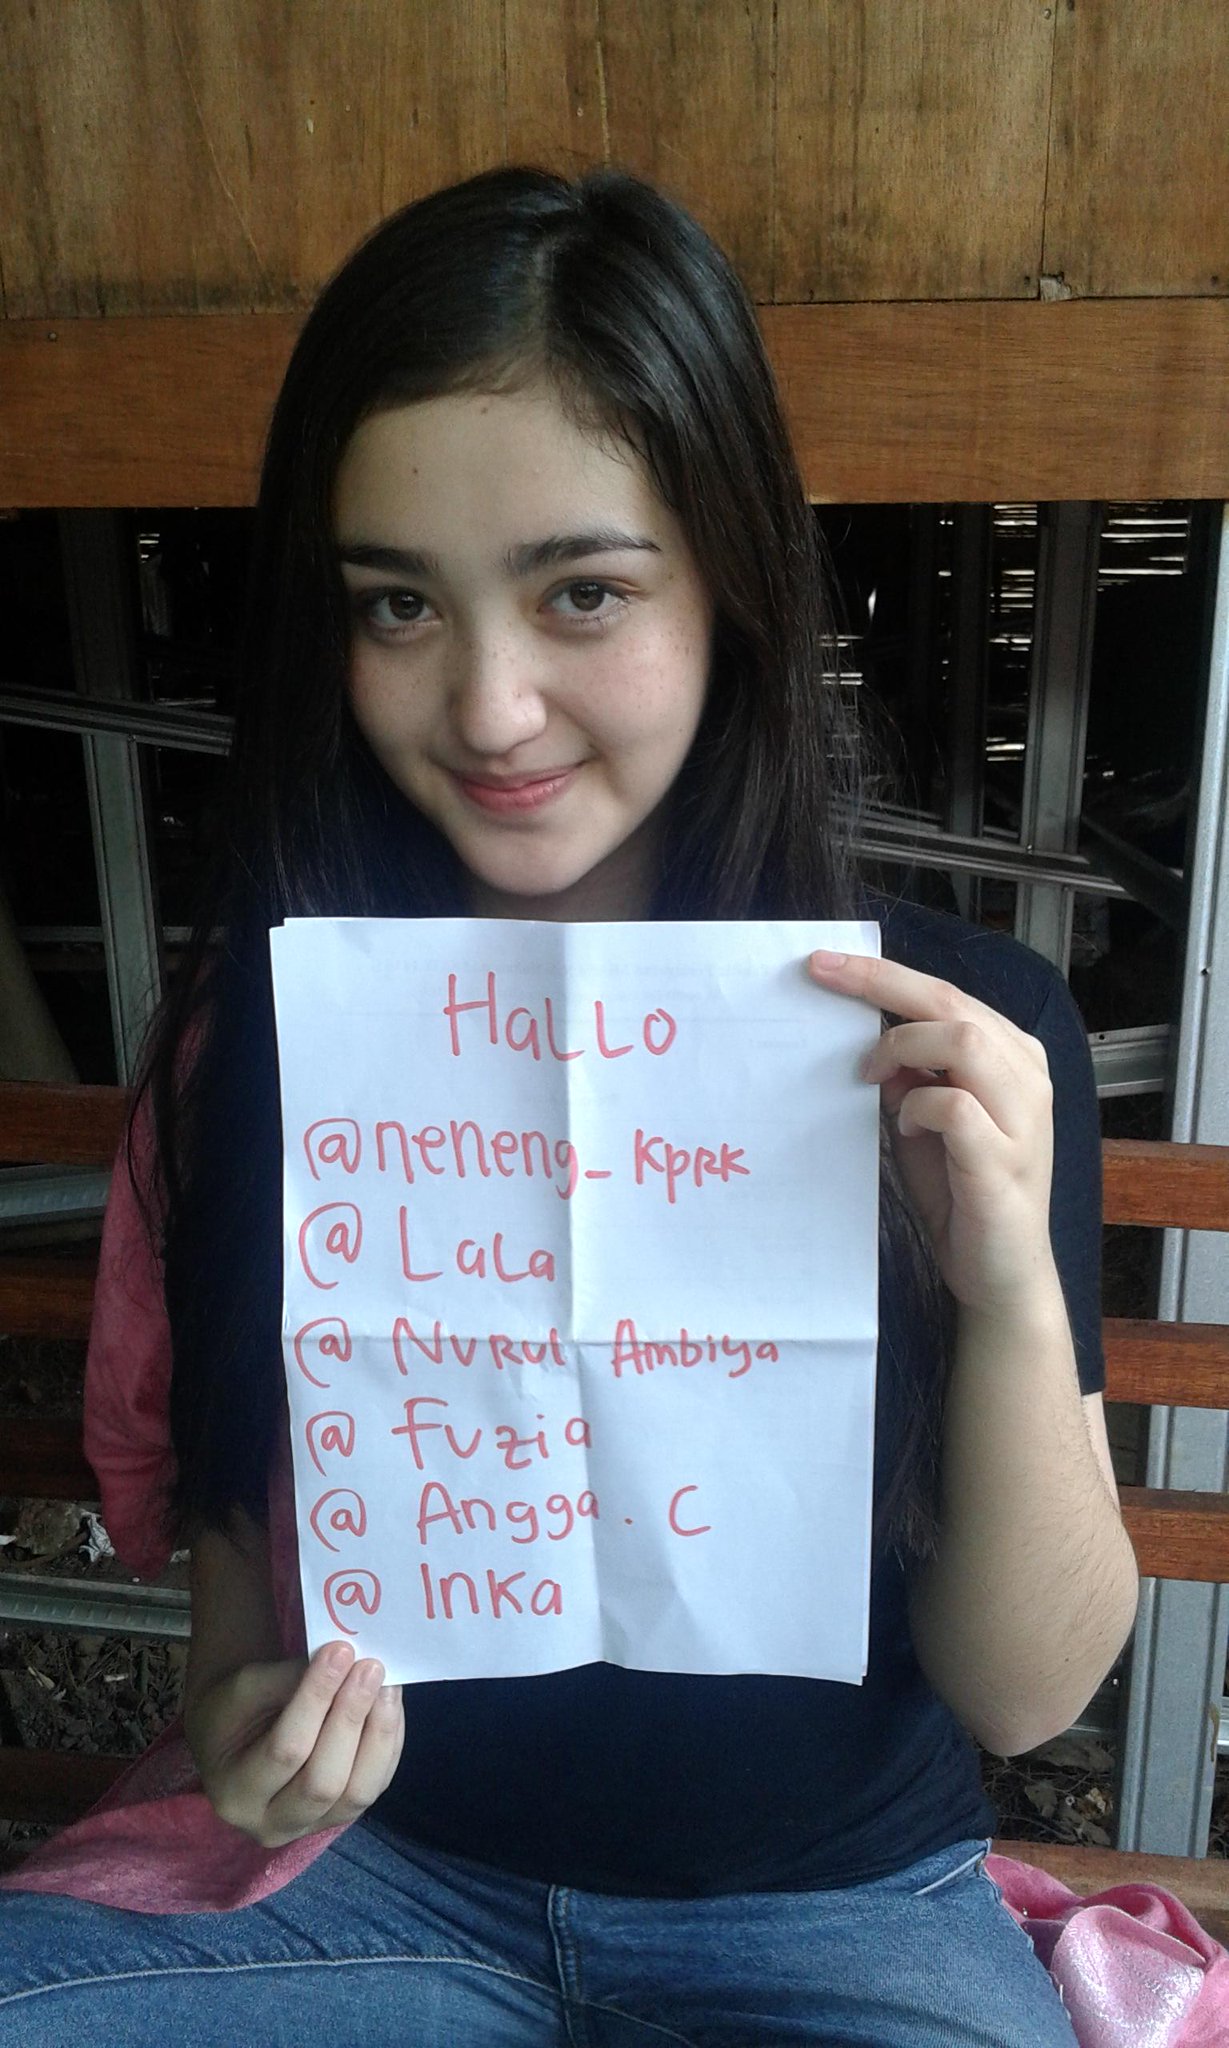 HaLLO
@neneng_KPRK
@ LaLa
@ NURUL Ambiya
@ Fuzia
@ Angga. C
@ Inka